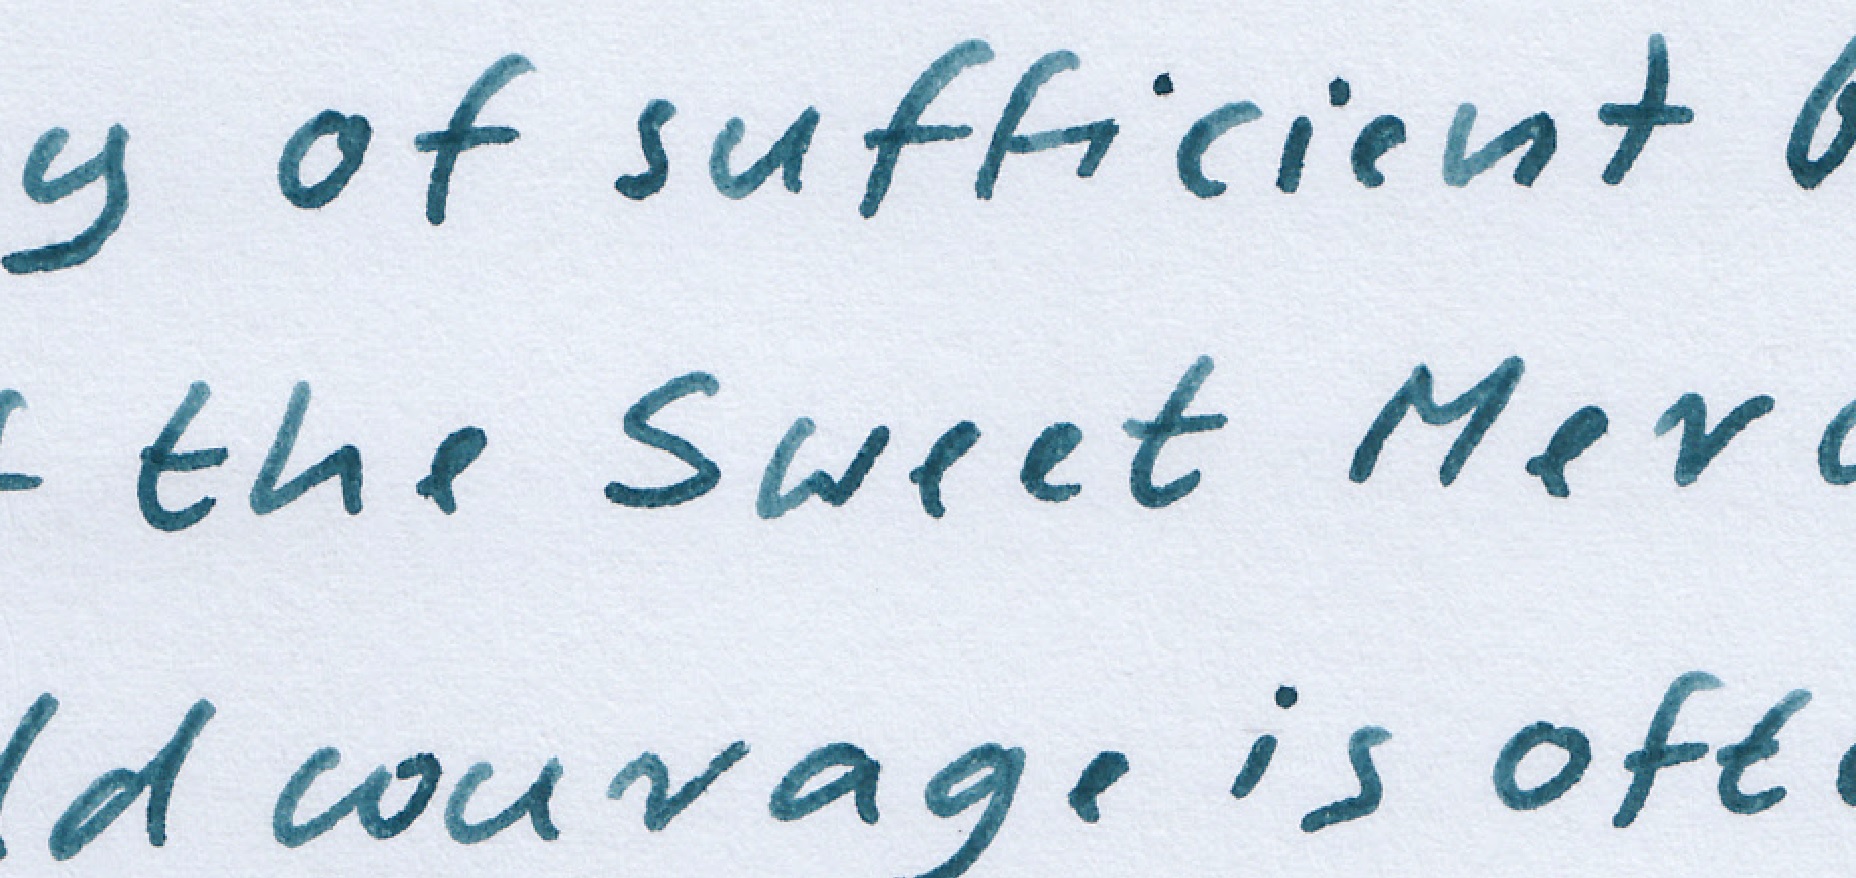 y of sufficient b
f the Sweet Merc
ld courage is ofte